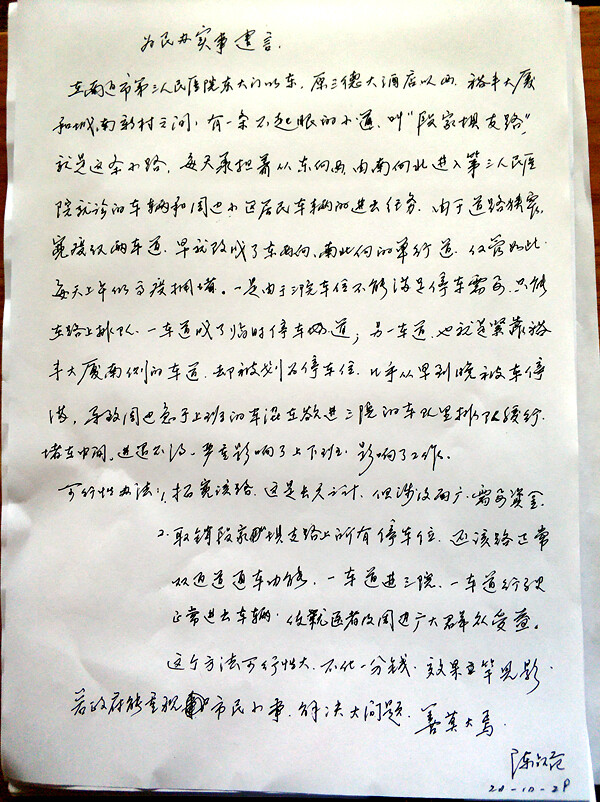 为民办实事建言.
在南通市第三人民医院东大门以东，原三德大酒店以西，裕丰大厦
和城南新村之间，有一条不起眼的小道，叫“段家坝支路”，
就是这条小路，每天承担着从东向西、由南向北进入第三人民医
院就诊的车辆和周边小区居民车辆的进出任务．由于道路狭窄，
宽度仅两车道．早就改成了东西向、南北向的单行道．仅管如此．
每天上午仍高度拥堵。一是由于三院车位不能满足停车需要．只能
在路上排队．一车道成了临时停车通道；另一车道．也就是紧靠裕
丰大厦南侧的车道．却被划为停车位．几乎从早到晚被车停
满，导致周边急于上班的车混在欲进三院的车队里排队缓行．
堵在中间，进退不得．严重影响了上下班．影响了工作．
可行性办法：1．拓宽该路．这是长久之计，但涉及面广．需要资金．
2．取销段家坝支路上所有停车位．还该路正常
双边道通车功能．一车道进三院．一车道行驶
正常进出车辆．使就医者及周边广大群众受益。
这个方法可行性大．不化一分钱．效果立竿见影．
若政府能重视市民小事．解决大问题．善莫大焉．